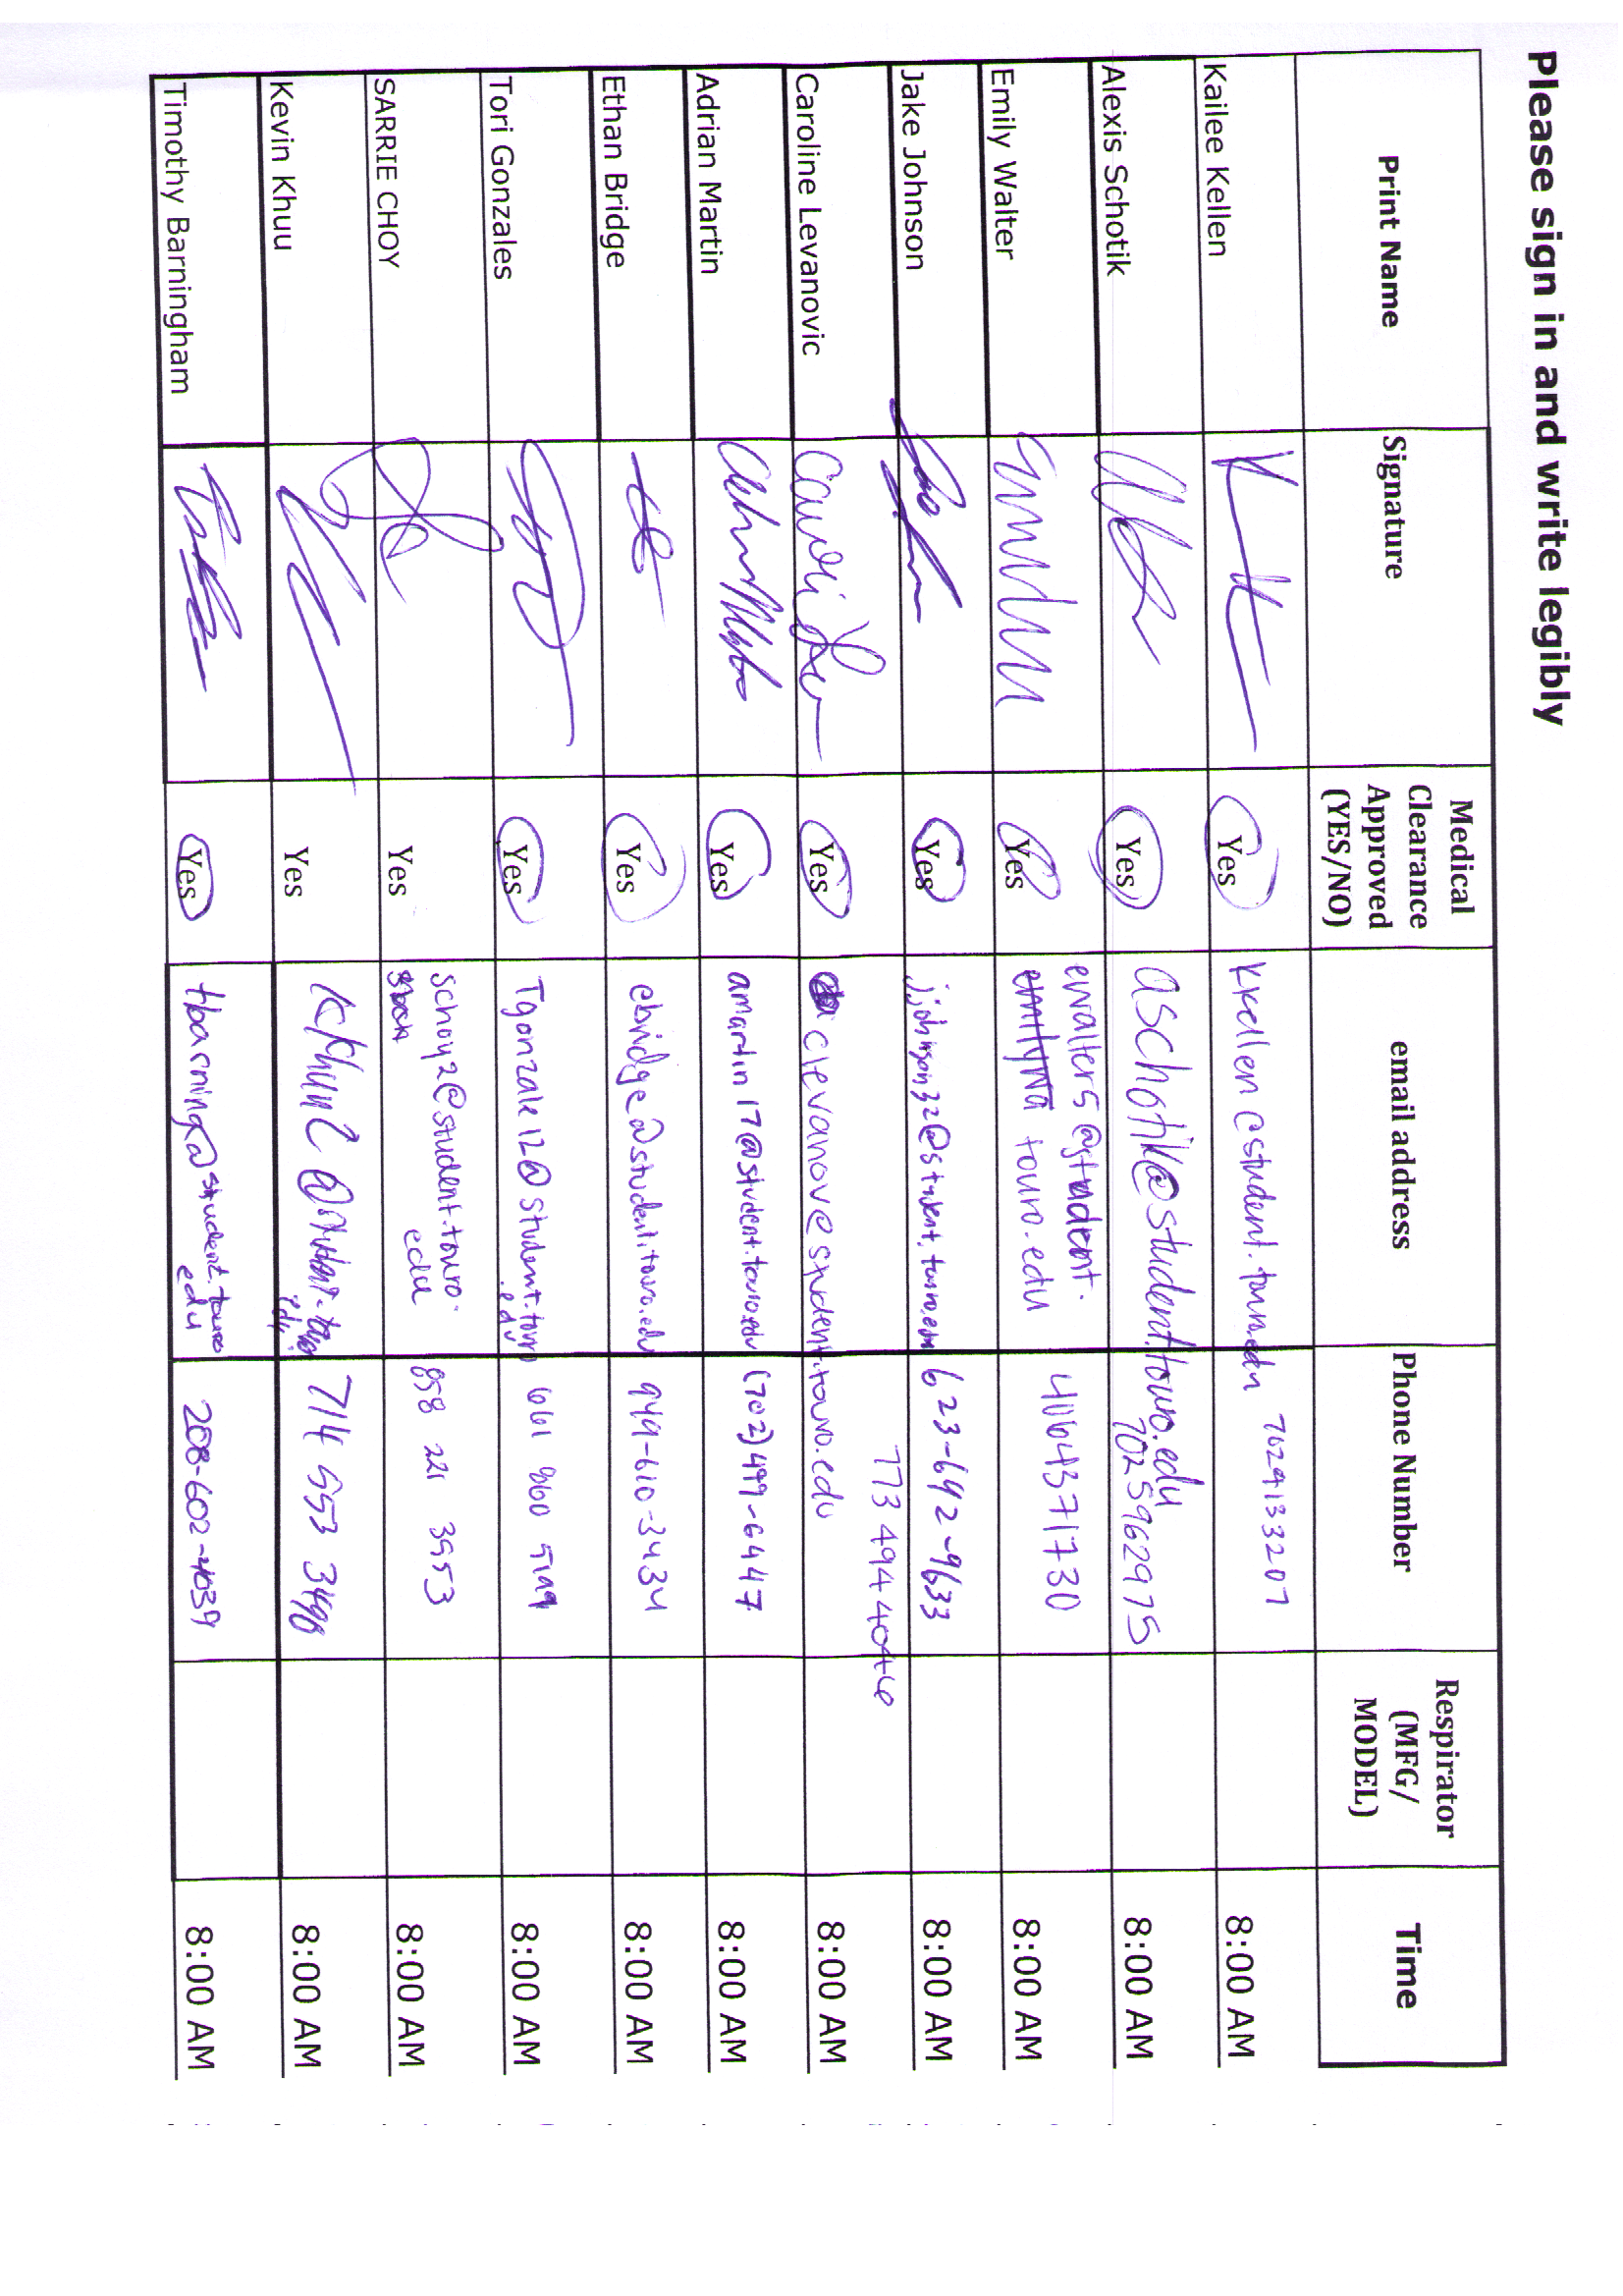 Please sign in and write legibly
Print Name Signature Medical Clearance Approved (YES/NO) email address Phone Number Respirator (MFG/ MODEL) Time
Kailee Kellen Yes kkellen@student.touro.edu 7029133207 8:00 AM
Alexis Schotik Yes aschotik@student.touro.edu 7025962975 8:00 AM
Emily Walter Yes ewalters@student. touro.edu 4064371730 8:00 AM
Jake Johnson Yes jjohnson32@student.touro.edu 623-692-9633 8:00 AM
Caroline Levanovic Yes clevanov@student.touro.edu 773 494 4046 8:00 AM
Adrian Martin Yes amartin17@student.touro.edu (702)499-6447 8:00 AM
Ethan Bridge Yes ebridge@student.touro.edu 949-610-3434 8:00 AM
Tori Gonzales Yes Tgonzale12@student.touro.edu 661 860 8:00 AM
SARRIE CHOY Yes schoy2@student.touro.edu 858 221 3953 8:00 AM
Kevin Khuu Yes 714 553 8:00 AM
Timothy Barningham Yes tbarning@student.touro.edu 208-602-4039 8:00 AM